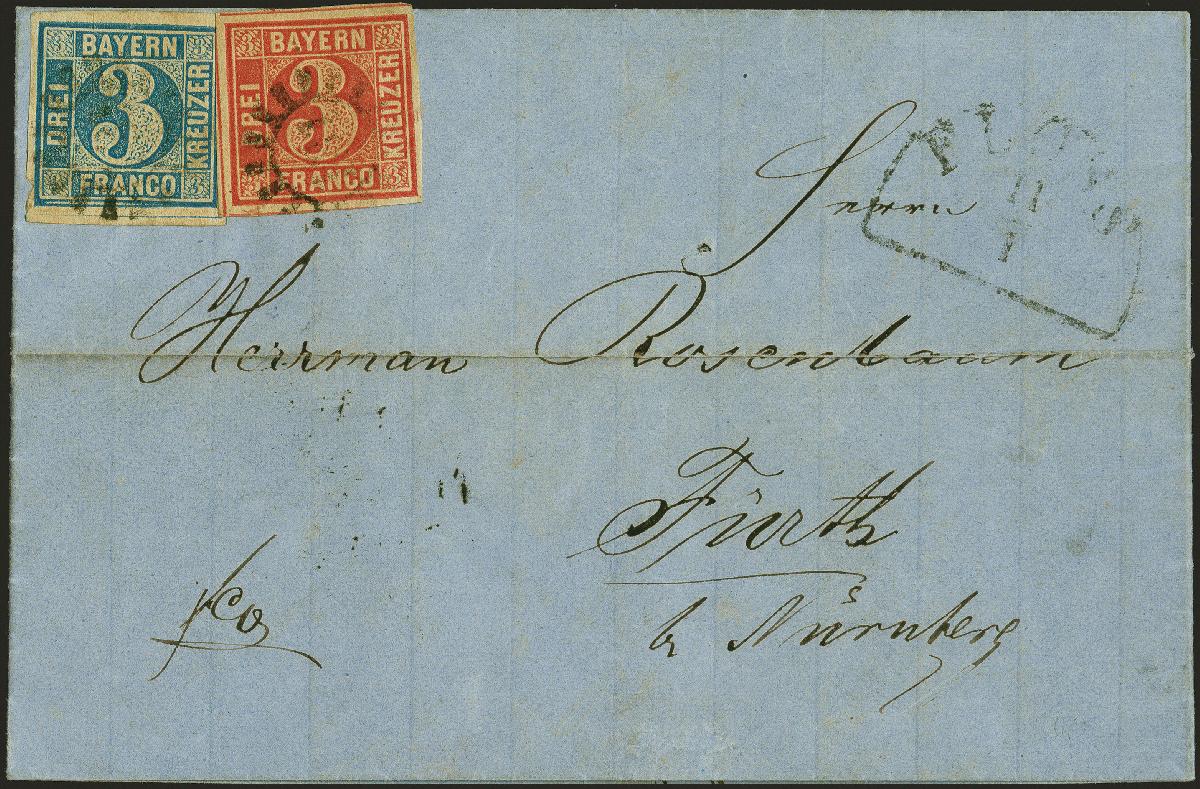 3 BAYERN 3
DREI 3 KREUZER
3 FRANCO 3
3 BAYERN 3
DREI 3 KREUZER
3 FRANCO 3
Herrn
Herrman Rosenbaum
Fürth
b Nürnberg
fco